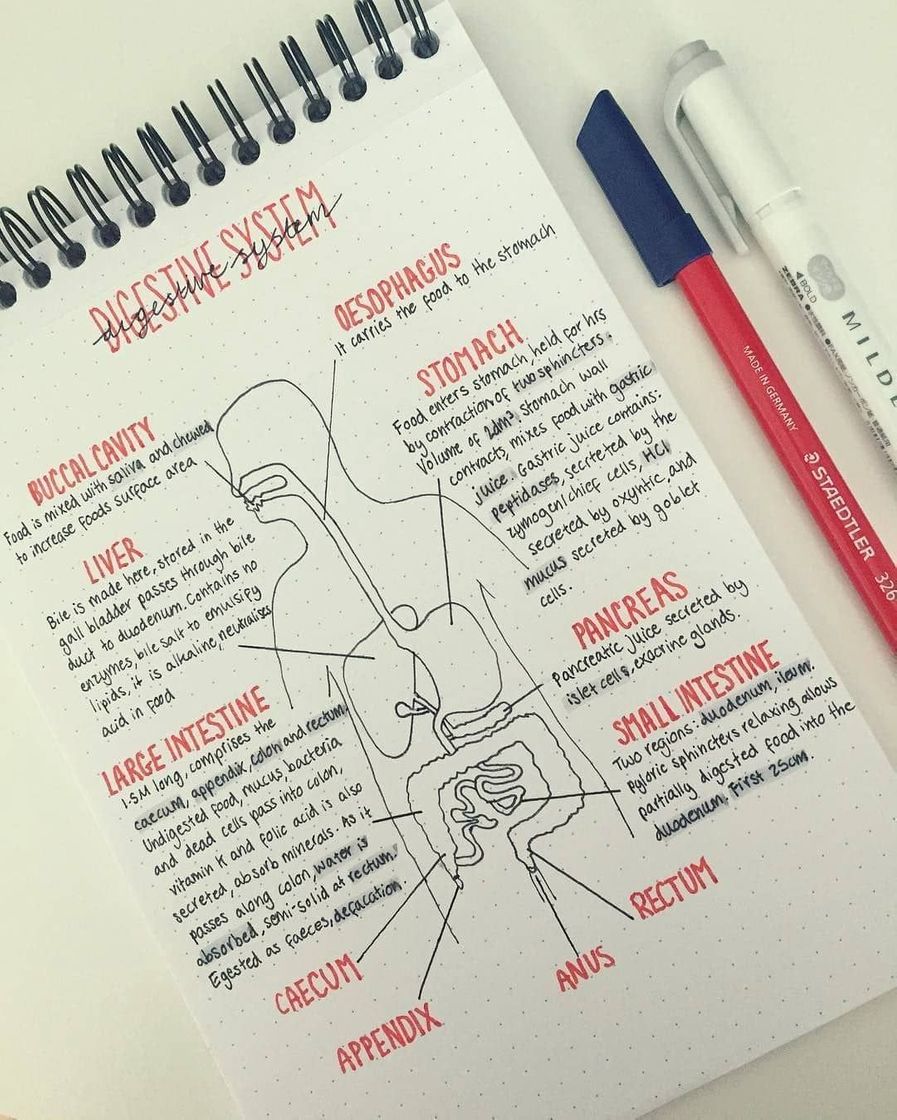 DIGESTIVE SYSTEM
digestive system
OESOPHAGUS
It carries the food to the stomach
STOMACH
Food enters stomach, held for hrs
by contraction of two sphincters.
Volume of 2dm³, stomach wall
contracts, mixes food with gastric
juice. Gastric juice contains:
peptidases, secreted by the
zymogen/chief cells, HCl
secreted by oxyntic, and
mucus secreted by goblet
cells.
BUCCAL CAVITY
Food is mixed with saliva and chewed
to increase foods surface area
LIVER
Bile is made here, stored in the
gall bladder passes through bile
duct to duodenum. Contains no
enzymes, bile salt to emulsify
lipids, it is alkaline, neutralises
acid in food
PANCREAS
Pancreatic juice secreted by
islet cells, exocrine glands.
LARGE INTESTINE
1.5M long, comprises the
caecum, appendix, colon and rectum.
Undigested food, mucus, bacteria
and dead cells pass into colon,
vitamin K and folic acid is also
secreted, absorb minerals. As it
passes along colon, water is
absorbed, semi-solid at rectum.
Egested as faeces, defacation
SMALL INTESTINE
Two regions: duodenum, ileum.
Pyloric sphincters relaxing allows
partially digested food into the
duodenum, First 25cm.
RECTUM
ANUS
CAECUM
APPENDIX
MADE IN GERMANY
STAEDTLER
326
BOLD
ZEBRA
MILD